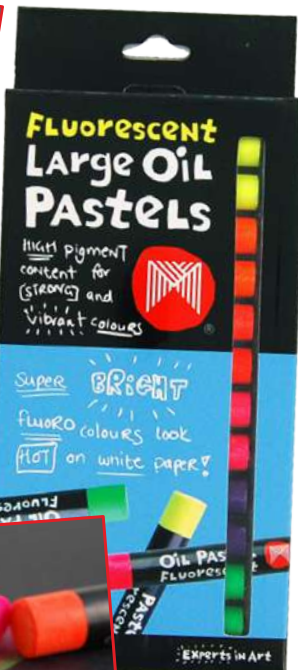 FLUORESCENT
Large Oil
Pastels
HIGH pigment
content for
[STRONG] and
Vibrant colours
®
Super BRIGHT
fluoro colours look
HOT on white paper!
OIL PAS
FLUORES
Experts in Art